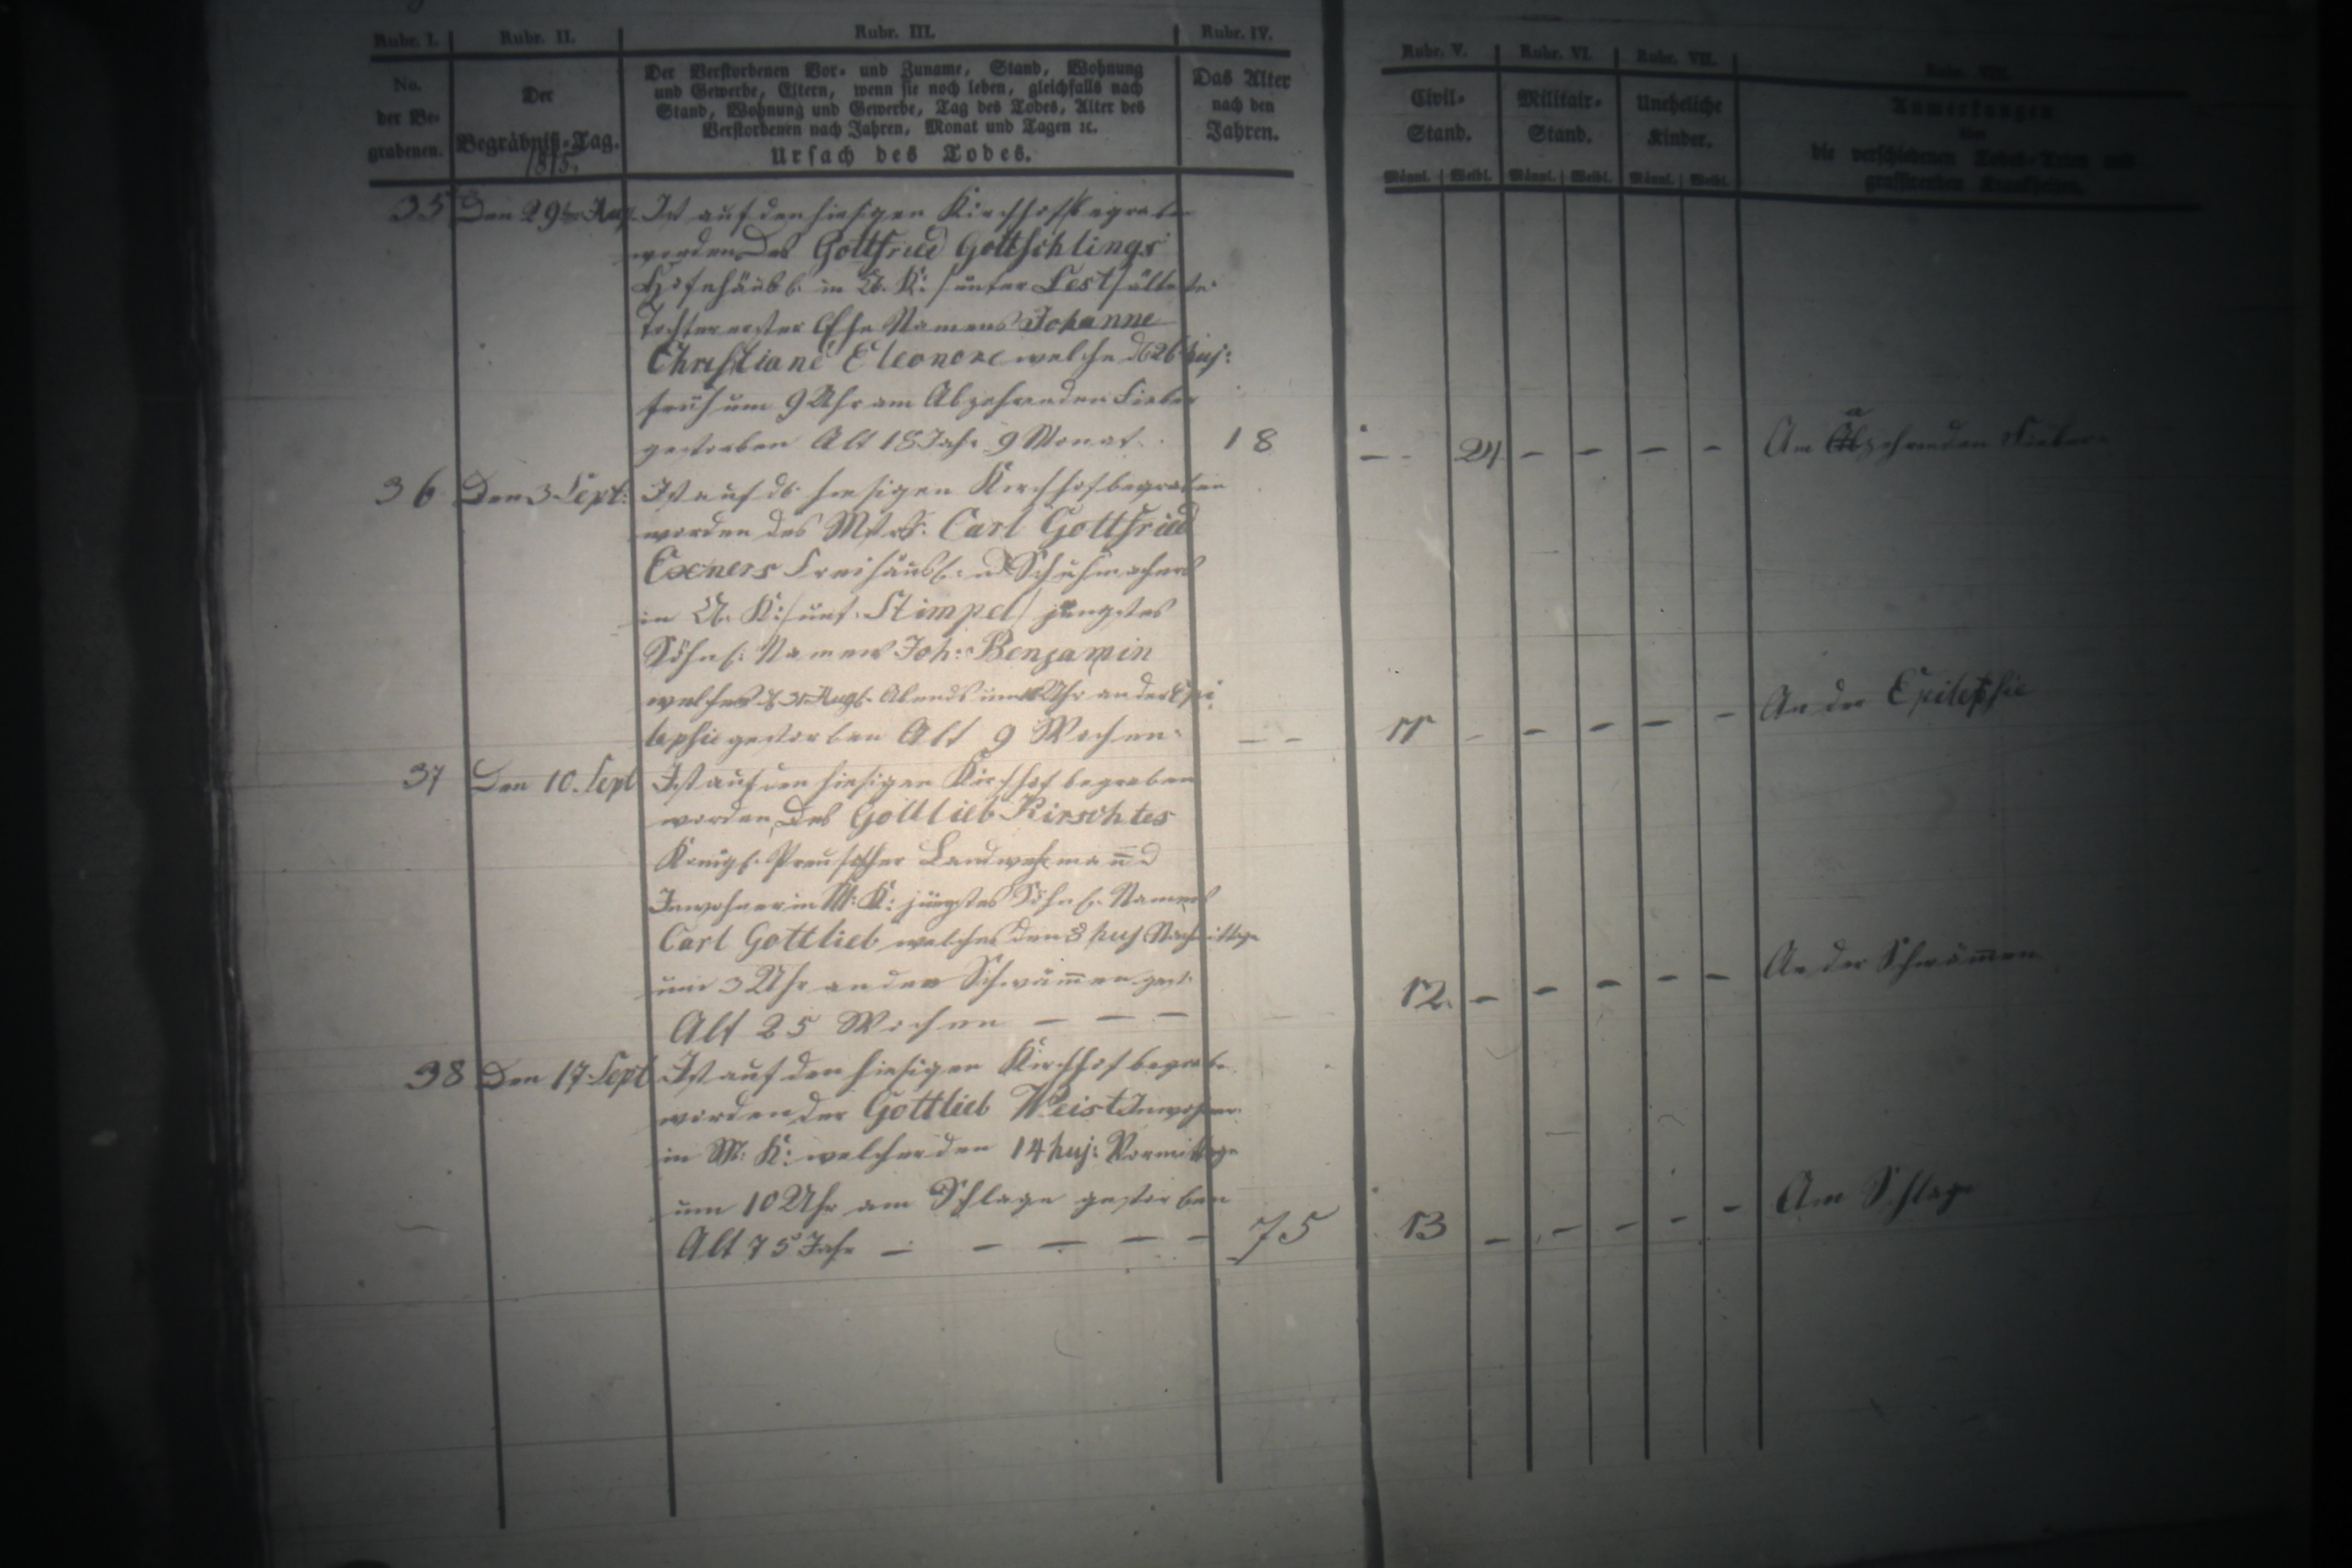 Rubr. I. Rubr. II. Rubr. III. Rubr. IV. Rubr. V. Rubr. VI. Rubr. VII. Rubr. VIII.
No. der Be- grabenen.
Der Begräbniß-Tag. 1815.
Der Verstorbenen Vor- und Zuname, Stand, Wohnung
und Gewerbe, Eltern, wenn sie noch leben, gleichfalls nach
Stand, Wohnung und Gewerbe, Tag des Todes, Alter des
Verstorbenen nach Jahren, Monat und Tagen ꝛc.
Ursach des Todes.
Das Alter nach den Jahren.
Civil- Stand. Männl. Weibl.
Militair- Stand. Männl. Weibl.
Uneheliche Kinder. Männl. Weibl.
Anmerkungen
über
die verschiedenen Todes-Arten und
grassirenden Krankheiten.
35 Den 29ten Aug. Ist auf den hiesigen Kirchhof begraben
worden Des Gottfried Gottschlings
Hofehäusl. in K: /unter Lest/ älteste
Tochter erster Ehe Namens Johanne
Christiane Eleonore welche d 26 huj:
früh um 9 Uhr am Abzehrenden Fieber
gestorben Alt 18 Jahr 9 Monat. 18 – 24 – – – – Am abzehrenden Fieber
36 Den 3 Sept: Ist auf d. hiesigen Kirchhof begraben
worden des Mstrs. Carl Gottfried
Exners Freihäusl: u Schuhmachers
in K: /unt. Stimpel/ jüngstes
Söhnl: Namens Joh: Benjamin
welches d 31 Aug. Abends um Uhr an der Epi
lepsie gestorben Alt 9 Wochen. – – 11 – – – – – An der Epilepsie
37 Den 10. Sept Ist auf den hiesigen Kirchhof begraben
worden, Des Gottlieb Kirschtes
Königl. Preußscher Landwehrman̄ u
Inwohner in M: K: jüngstes Söhnl. Namens
Carl Gottlieb welches den 8 huj Nachmittags
um 3 Uhr an den Schwäm̄en gest.
Alt 25 Wochen – – – 12. – – – – – An der Schwäm̄en
38 Den 17 Sept Ist auf den hiesigen Kirchhof begraben
worden der Gottlieb Weist Inwohner
in M: K: welcher den 14 huj: Vormittags
um 10 Uhr am Schlage gestorben
Alt 75 Jahr – – – – – 75 13 – – – – – Am Schlage